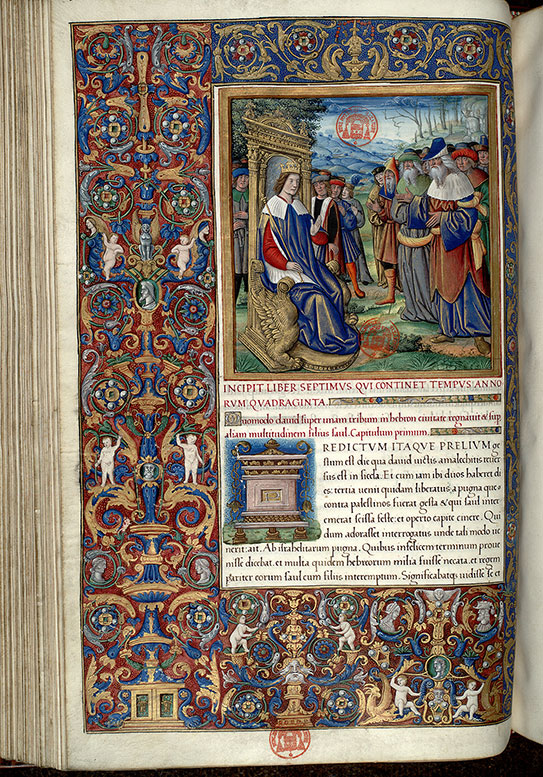 INCIPIT LIBER SEPTIMVS QVI CONTINET TEMPVS ANNO
RVM QVADRAGINTA
Quomodo david super unam tribum in hebron civitate regnavit & sup
aliam multitudinem filius saul. Capitulum primum.
PREDICTUM ITAQUE PRELIUM ge
stum est die qua david victis amalechitis rever
sus est in sicela. Et cum iam ibi dies haberet di
es: tertia venit quidam liberatus a pugna que
contra palestinos fuerat gesta & qui saul inter
emerat scissa veste: et operto capite cinere. Qui
dum adorasset interrogatus unde tali modo ve
nerit: ait. Ab israhelitarum pugna. Quibus infelicem terminum prove
nisse dicebat. et multa quidem hebreorum milia fuisse necata. et regem
pariter eorum saul cum filiis interemptum. Significabatq3 vidisse se et